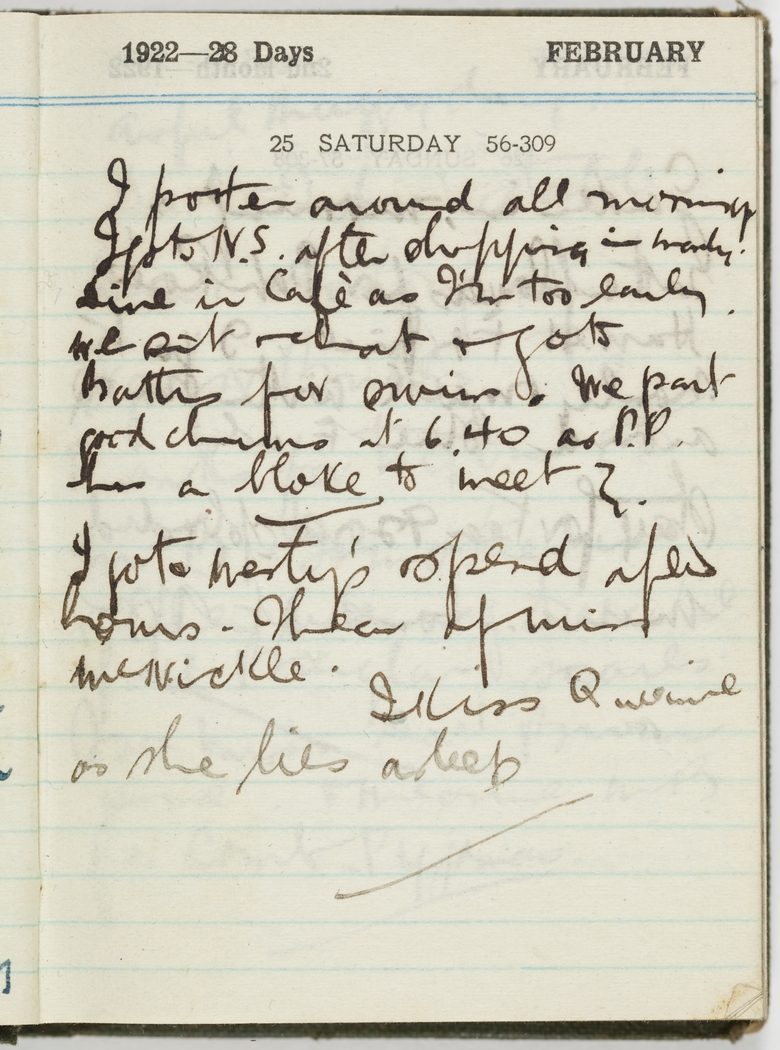 1922—28 Days FEBRUARY
25 SATURDAY 56-309
I potter around all morning
I go to N.S. after shopping in
dine in Café as I'm too early.
we sit & chat & go to
Baths for swim. We part
good chums at 6.40 as P.P.
has a bloke to meet?.
I go to Westy's & spend a few
hours. I hear of miss
McNickle.
I Kiss Queenie
as she lies asleep